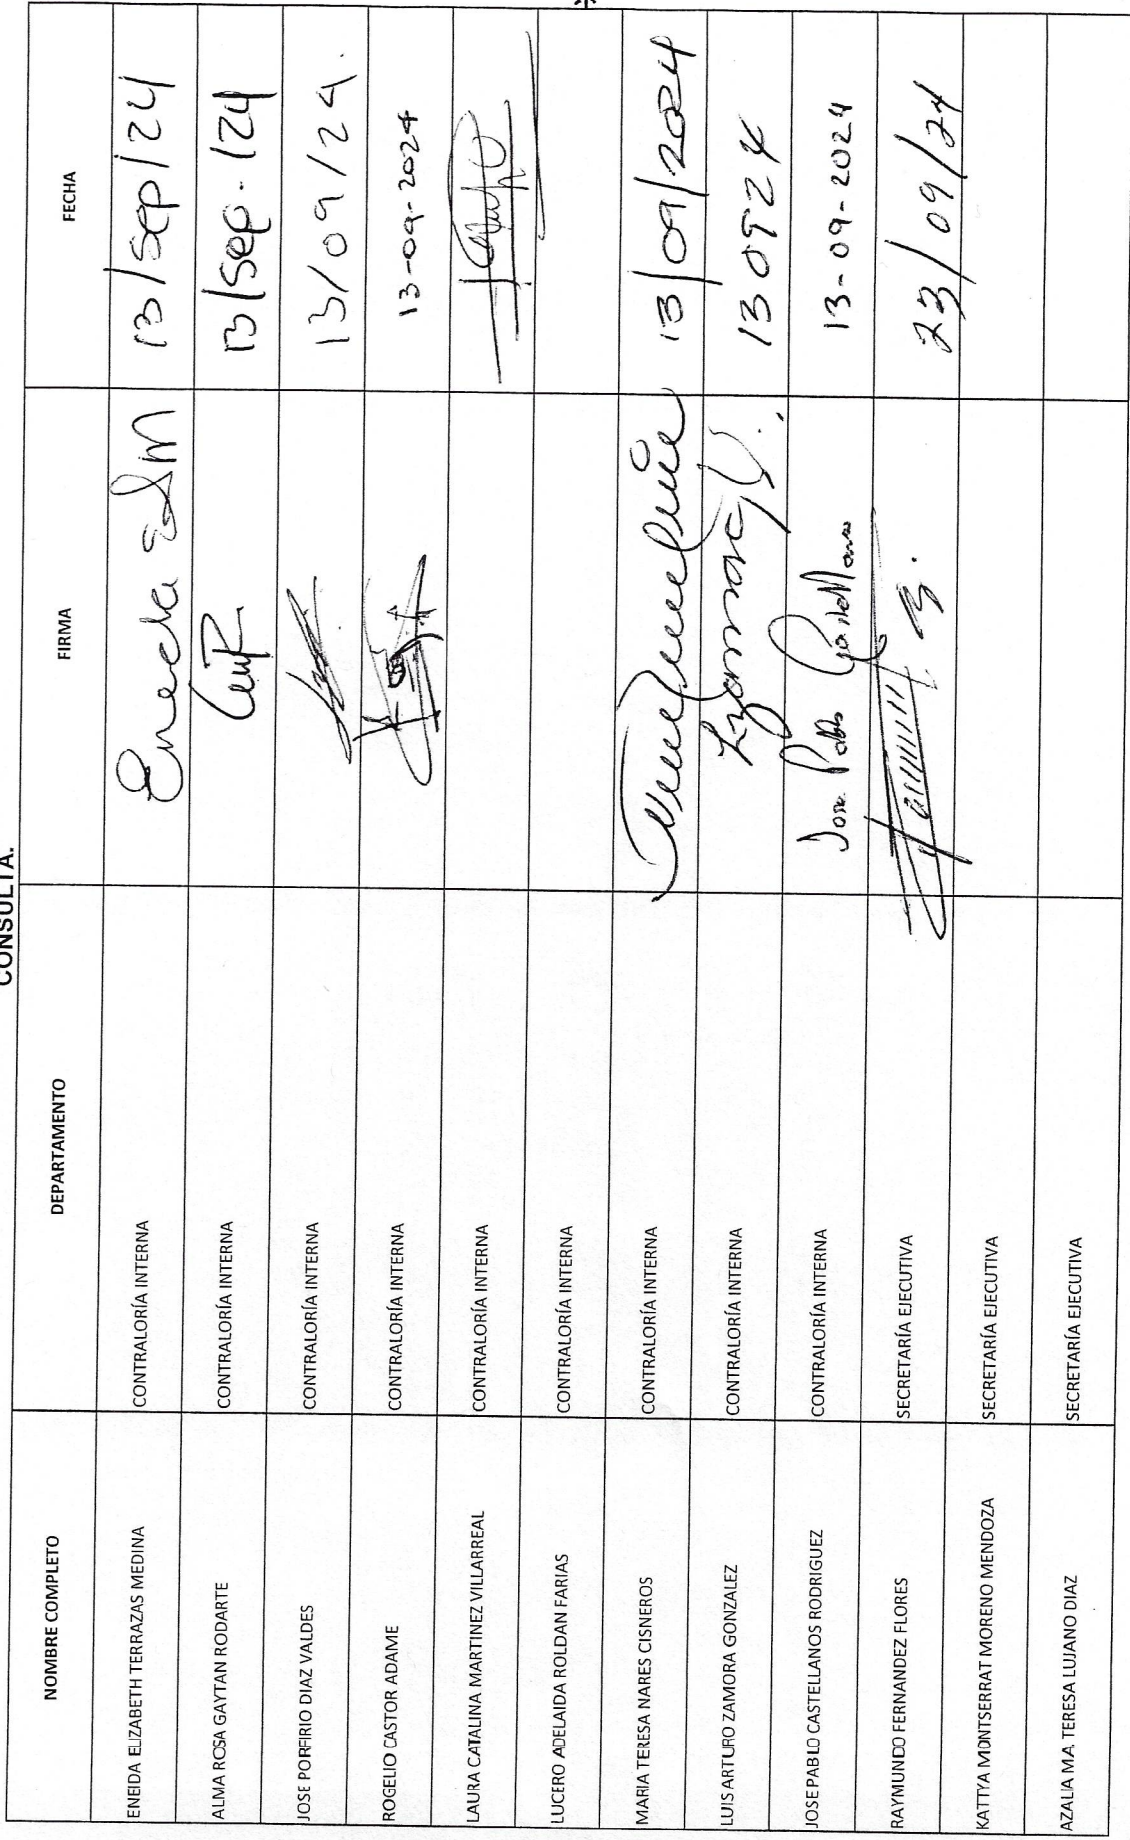 CONSULTA.
NOMBRE COMPLETO DEPARTAMENTO FIRMA FECHA
ENEIDA ELIZABETH TERRAZAS MEDINA CONTRALORÍA INTERNA 13/sep/24
ALMA ROSA GAYTAN RODARTE CONTRALORÍA INTERNA 13/sep./24
JOSE PORFIRIO DIAZ VALDES CONTRALORÍA INTERNA 13/09/24.
ROGELIO CASTOR ADAME CONTRALORÍA INTERNA 13-09-2024
LAURA CATALINA MARTINEZ VILLARREAL CONTRALORÍA INTERNA
LUCERO ADELAIDA ROLDAN FARIAS CONTRALORÍA INTERNA
MARIA TERESA NARES CISNEROS CONTRALORÍA INTERNA 13/09/2024
LUIS ARTURO ZAMORA GONZALEZ CONTRALORÍA INTERNA 13 09 24
JOSE PABLO CASTELLANOS RODRIGUEZ CONTRALORÍA INTERNA Jose Pablo 13-09-2024
RAYMUNDO FERNANDEZ FLORES SECRETARÍA EJECUTIVA 23/09/24
KATTYA MONTSERRAT MORENO MENDOZA SECRETARÍA EJECUTIVA
AZALIA MA. TERESA LUJANO DIAZ SECRETARÍA EJECUTIVA